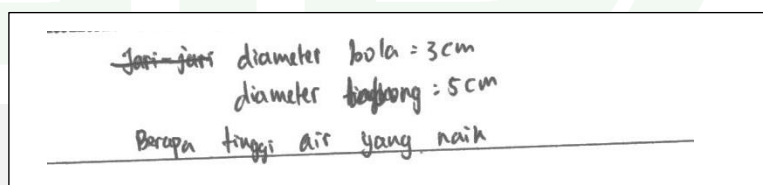 Jari-jari diameter bola = 3 cm
diameter : 5 cm
Berapa tinggi air yang naik